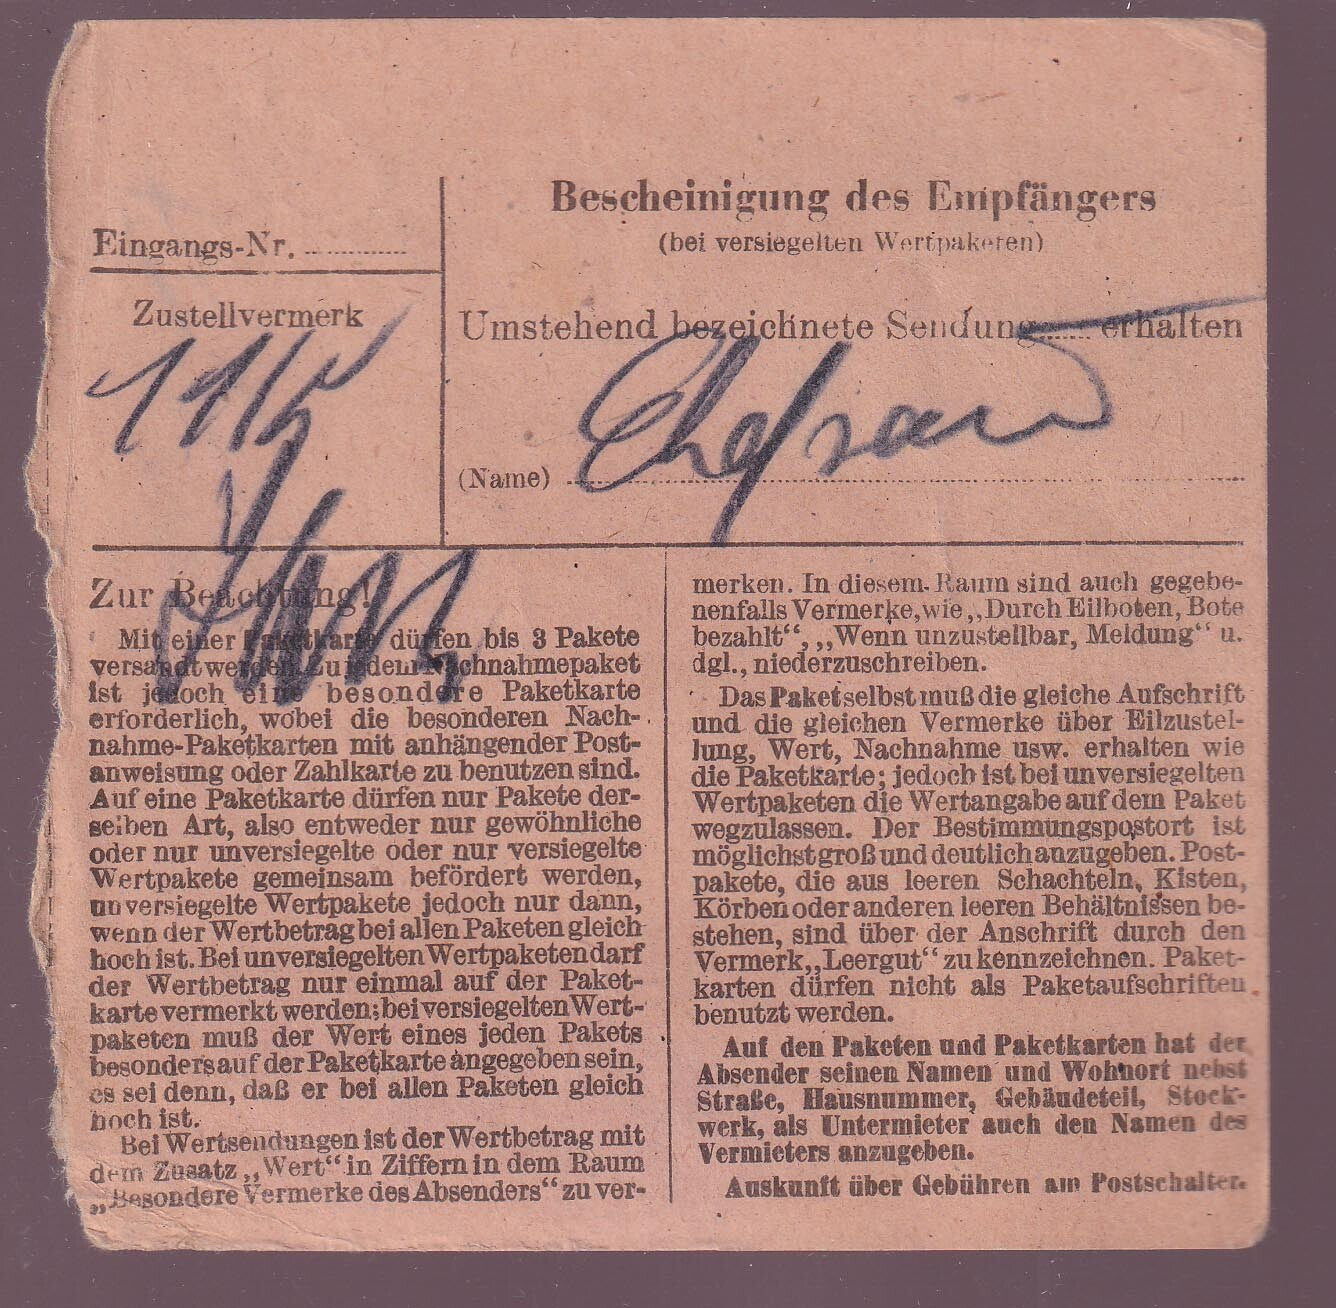 Eingangs-Nr.
Zustellvermerk
11/5
Bescheinigung des Empfängers
(bei versiegelten Wertpaketen)
Umstehend bezeichnete Sendung erhalten
(Name)
Zur Beachtung!
Mit einer Paketkarte dürfen bis 3 Pakete
versandt werden, zu jedem Nachnahmepaket
ist jedoch eine besondere Paketkarte
erforderlich, wobei die besonderen Nach-
nahme-Paketkarten mit anhängender Post-
anweisung oder Zahlkarte zu benutzen sind.
Auf eine Paketkarte dürfen nur Pakete der-
selben Art, also entweder nur gewöhnliche
oder nur unversiegelte oder nur versiegelte
Wertpakete gemeinsam befördert werden,
unversiegelte Wertpakete jedoch nur dann,
wenn der Wertbetrag bei allen Paketen gleich
hoch ist. Bei unversiegelten Wertpaketen darf
der Wertbetrag nur einmal auf der Paket-
karte vermerkt werden; bei versiegelten Wert-
paketen muß der Wert eines jeden Pakets
besonders auf der Paketkarte angegeben sein,
es sei denn, daß er bei allen Paketen gleich
hoch ist.
Bei Wertsendungen ist der Wertbetrag mit
dem Zusatz „Wert“ in Ziffern in dem Raum
„Besondere Vermerke des Absenders“ zu ver-
merken. In diesem Raum sind auch gegebe-
nenfalls Vermerke, wie „Durch Eilboten, Bote
bezahlt“, „Wenn unzustellbar, Meldung“ u.
dgl., niederzuschreiben.
Das Paket selbst muß die gleiche Aufschrift
und die gleichen Vermerke über Eilzustel-
lung, Wert, Nachnahme usw. erhalten wie
die Paketkarte; jedoch ist bei unversiegelten
Wertpaketen die Wertangabe auf dem Paket
wegzulassen. Der Bestimmungspostort ist
möglichst groß und deutlich anzugeben. Post-
pakete, die aus leeren Schachteln, Kisten,
Körben oder anderen leeren Behältnissen be-
stehen, sind über der Anschrift durch den
Vermerk „Leergut“ zu kennzeichnen. Paket-
karten dürfen nicht als Paketaufschriften
benutzt werden.
Auf den Paketen und Paketkarten hat der
Absender seinen Namen und Wohnort nebst
Straße, Hausnummer, Gebäudeteil, Stock-
werk, als Untermieter auch den Namen des
Vermieters anzugeben.
Auskunft über Gebühren am Postschalter.